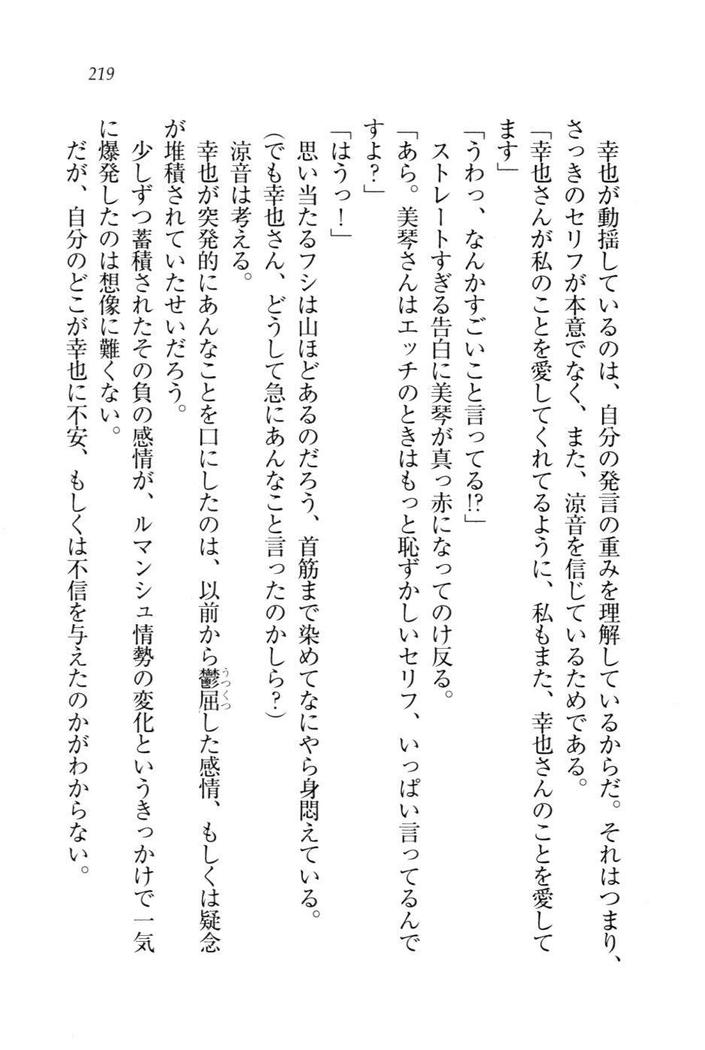 219
幸也が動揺しているのは、自分の発言の重みを理解しているからだ。それはつまり、
さっきのセリフが本意でなく、また、涼音を信じているためである。
「幸也さんが私のことを愛してくれてるように、私もまた、幸也さんのことを愛して
ます」
「うわっ、なんかすごいこと言ってる!?」
ストレートすぎる告白に美琴が真っ赤になってのけ反る。
「あら。美琴さんはエッチのときはもっと恥ずかしいセリフ、いっぱい言ってるんで
すよ?」
「はうっ!」
思い当たるフシは山ほどあるのだろう、首筋まで染めてなにやら身悶えている。
(でも幸也さん、どうして急にあんなこと言ったのかしら?)
涼音は考える。
幸也が突発的にあんなことを口にしたのは、以前から鬱屈うつくつした感情、もしくは疑念
が堆積されていたせいだろう。
少しずつ蓄積されたその負の感情が、ルマンシュ情勢の変化というきっかけで一気
に爆発したのは想像に難くない。
だが、自分のどこが幸也に不安、もしくは不信を与えたのかがわからない。